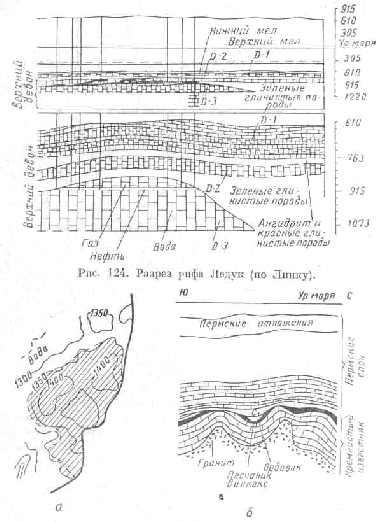 915
610
305
Ур. моря
Нижний мел
Верхний мел
D-2
D-1
305
610
915
1220
Верхний девон
Зеленые глинистые породы
D-3
D-1
610
763
915
1073
Верхний девон
D-2
Зеленые глинистые породы
Ангидрит и красные глинистые породы
Газ
Нефть
Вода
D-3
Рис. 124. Разрез рифа Ледук (по Линку).
1350
Вода
1300
1350
1400
1400
а
Ю
Ур. моря
С
Пермские отложения
Пермские слои
Кремнистый известняк
Гранит
Песчаник Вилкокс
Ордовик
б